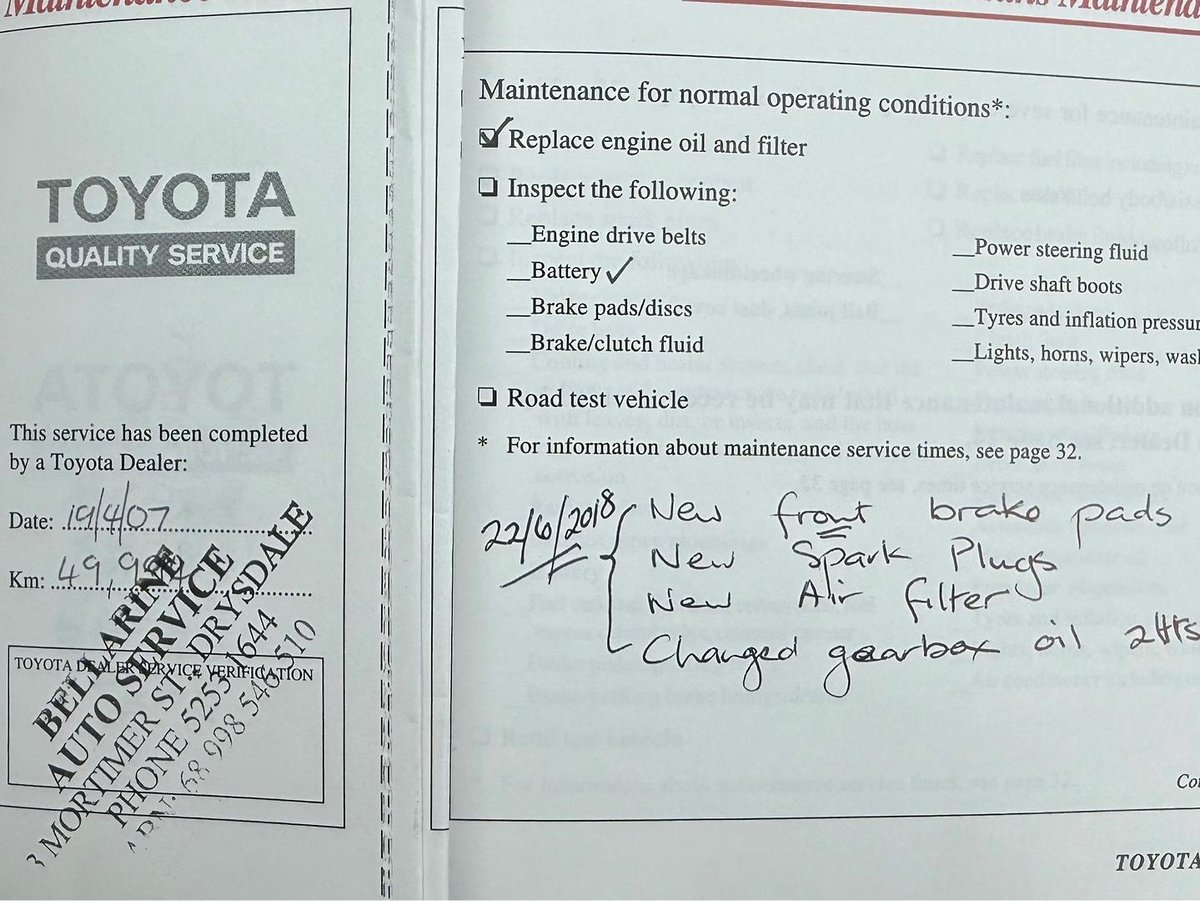 TOYOTA
QUALITY SERVICE
This service has been completed
by a Toyota Dealer:
Date: 19/4/07
Km: 49,984
TOYOTA DEALER SERVICE VERIFICATION
BELLARINE
AUTO SERVICE
3 MORTIMER ST. DRYSDALE
PHONE 5253 1644
ABN: 68 998 546 510
Maintenance for normal operating conditions*:
Replace engine oil and filter
Inspect the following:
Engine drive belts
Battery ✓
Brake pads/discs
Brake/clutch fluid
Power steering fluid
Drive shaft boots
Tyres and inflation pressur
Lights, horns, wipers, wash
Road test vehicle
* For information about maintenance service times, see page 32.
22/6/2018
New front brake pads
New Spark Plugs
New Air filter
Changed gearbox oil 2ltrs
TOYOTA